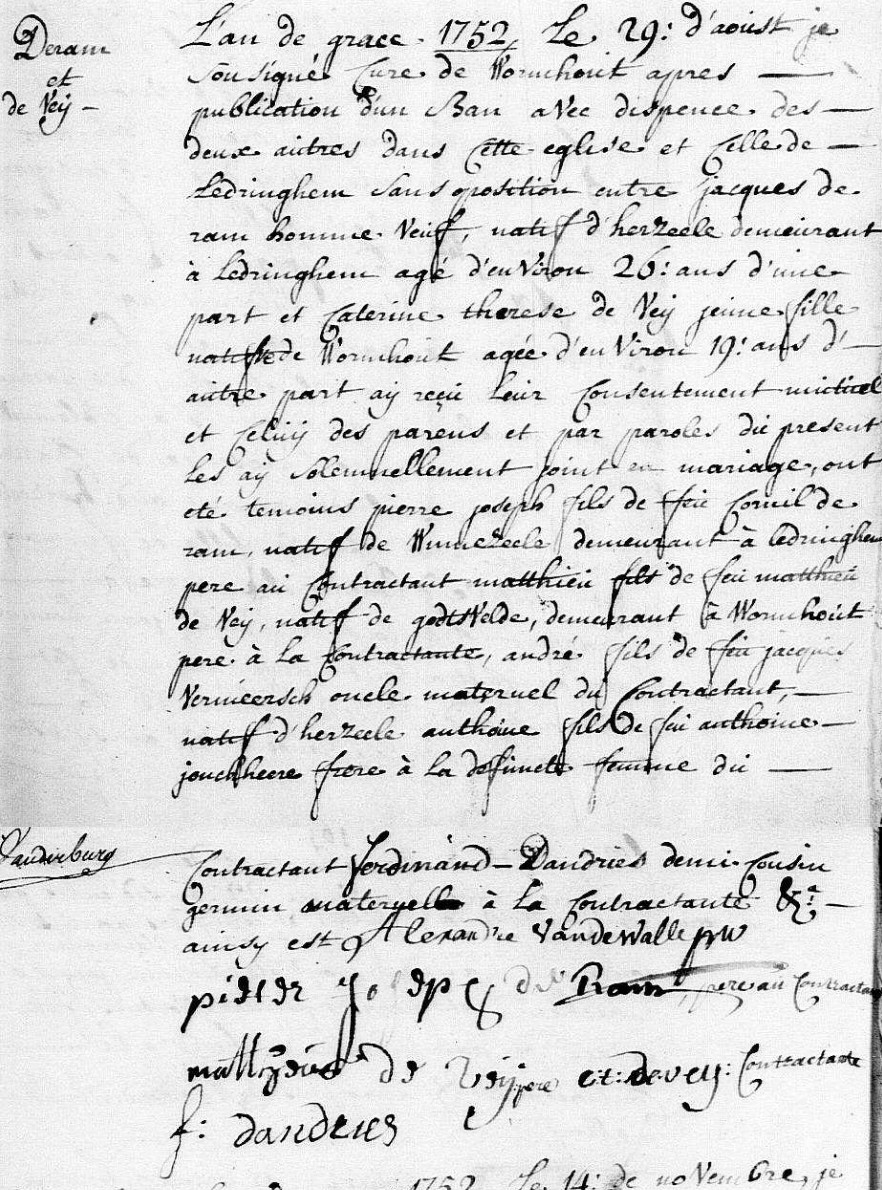 Deram
et
de Veij -
L'an de grace 1752 Le 29: d'aoust je
Sousigné Cure de Wormhout apres —
publication d'un Ban avec dispence des —
deux autres dans Cette eglise et Celle de —
Ledringhem Sans oposition entre jacques de
ram homme Veuf, natif d'herzeele demeurant
à Ledringhem agé d'environ 26: ans d'une
part et Caterine therese de Veij jeune fille
native de Wormhout agée d'environ 19: ans d'—
autre part aij reçu leur Consentement mutuel
et Celuij des parens et par paroles du present
Les aij Solemnellement joint en mariage, ont
eté temoins pierre joseph fils de feu Cornil de
ram, natif de Winnezeele demeurant à ledringhem
pere au Contractant matthieu fils de feu matthieu
de Veij, natif de godtsVelde, demeurant à Wormhout
pere à La Contractante, andré fils de feu jacques
Vermeersch oncle maternel du Contractant, —
natif d'herzeele anthoine fils de feu anthoine —
jouckheere frere à La defuncte femme du —
Vanderburg
Contractant Ferdinand - Dandries demi Cousin
germin maternelle à La Contractante &:a —
ainsy est Alexandre Vandewalle pw
pieter Joseph de Ram, pere au Contractant
mattheus de Veij pere et: devey: Contractante
f: dandries
1752 Le 14: de novembre, je